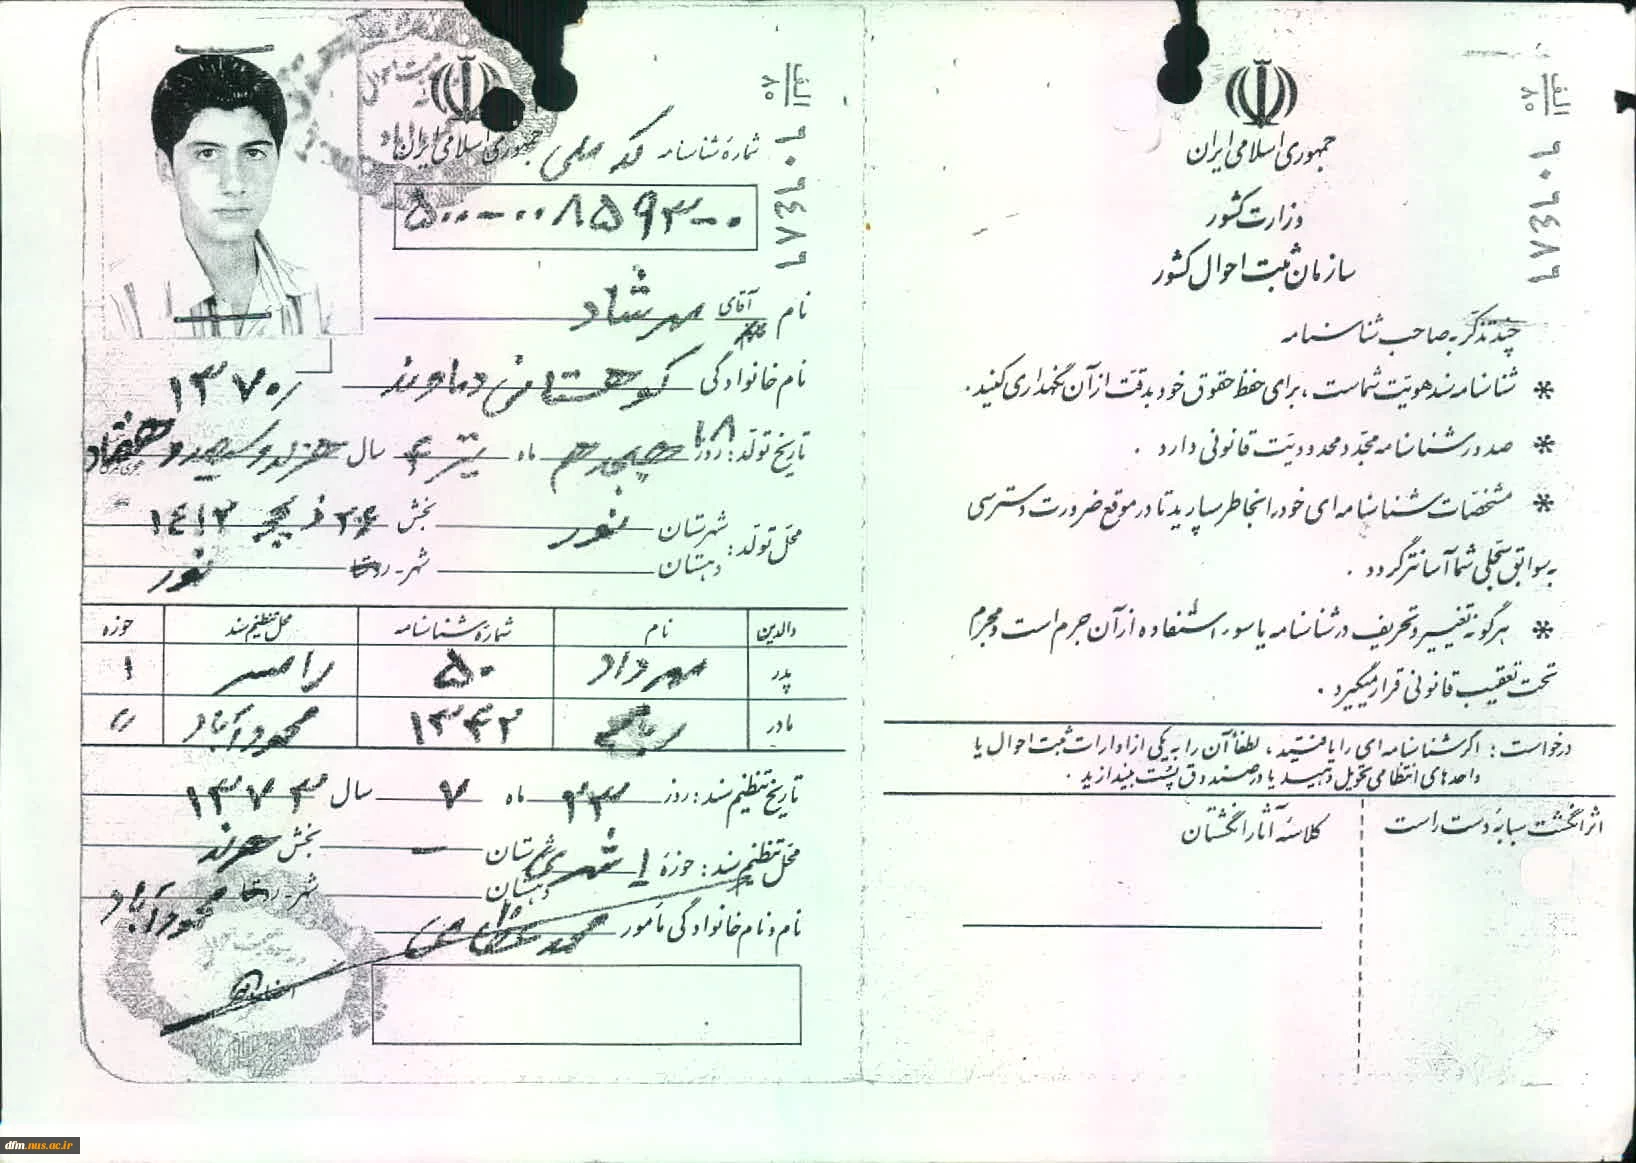 جمهوری اسلامی ایران
وزارت کشور
سازمان ثبت احوال کشور
الف
۸۰
چند تذکر به صاحب شناسنامه
* شناسنامه سند هویت شماست ، برای حفظ حقوق خود بدقت از آن نگهداری کنید .
* صدور شناسنامه مجدد محدودیت قانونی دارد .
* مشخصات شناسنامه ای خود را بخاطر بسپارید تا در موقع ضرورت دسترسی
به سوابق سجلی شما آسانتر گردد .
* هرگونه تغییر و تحریف در شناسنامه یا سوء استفاده از آن جرم است و مجرم
تحت تعقیب قانونی قرار میگیرد .
درخواست : اگر شناسنامه ای را یافتید ، لطفاً آن را به یکی از ادارات ثبت احوال یا
واحدهای انتظامی تحویل دهید یا در صندوق پست بیندازید .
اثر انگشت سبابه دست راست
کلاسه آثار انگشتان
جمهوری اسلامی ایران
الف
۸۰
شماره شناسنامه کد ملی
نام آقای مهرشاد
نام خانوادگی کوهستانی دماوند
۱۳۷۰
تاریخ تولد : روز ۱۸ هیجدهم ماه تیر ۴ سال هزار و سیصد و هفتاد
محل تولد : شهرستان نور بخش ۲۶ ذیحجه ۱۴۱۲
دهستان شهر - روستا نور
والدین نام شماره شناسنامه محل تنظیم سند حوزه
پدر مهرداد ۵۰ رامسر ۱
مادر ۱۳۴۲ محمودآباد //
تاریخ تنظیم سند : روز ۲۳ ماه ۷ سال ۱۳۷۳
محل تنظیم سند : حوزه ۱ شهری شهرستان - بخش
دهستان شهر - روستا محمودآباد
نام و نام خانوادگی مأمور محمد
dfm.nus.ac.ir